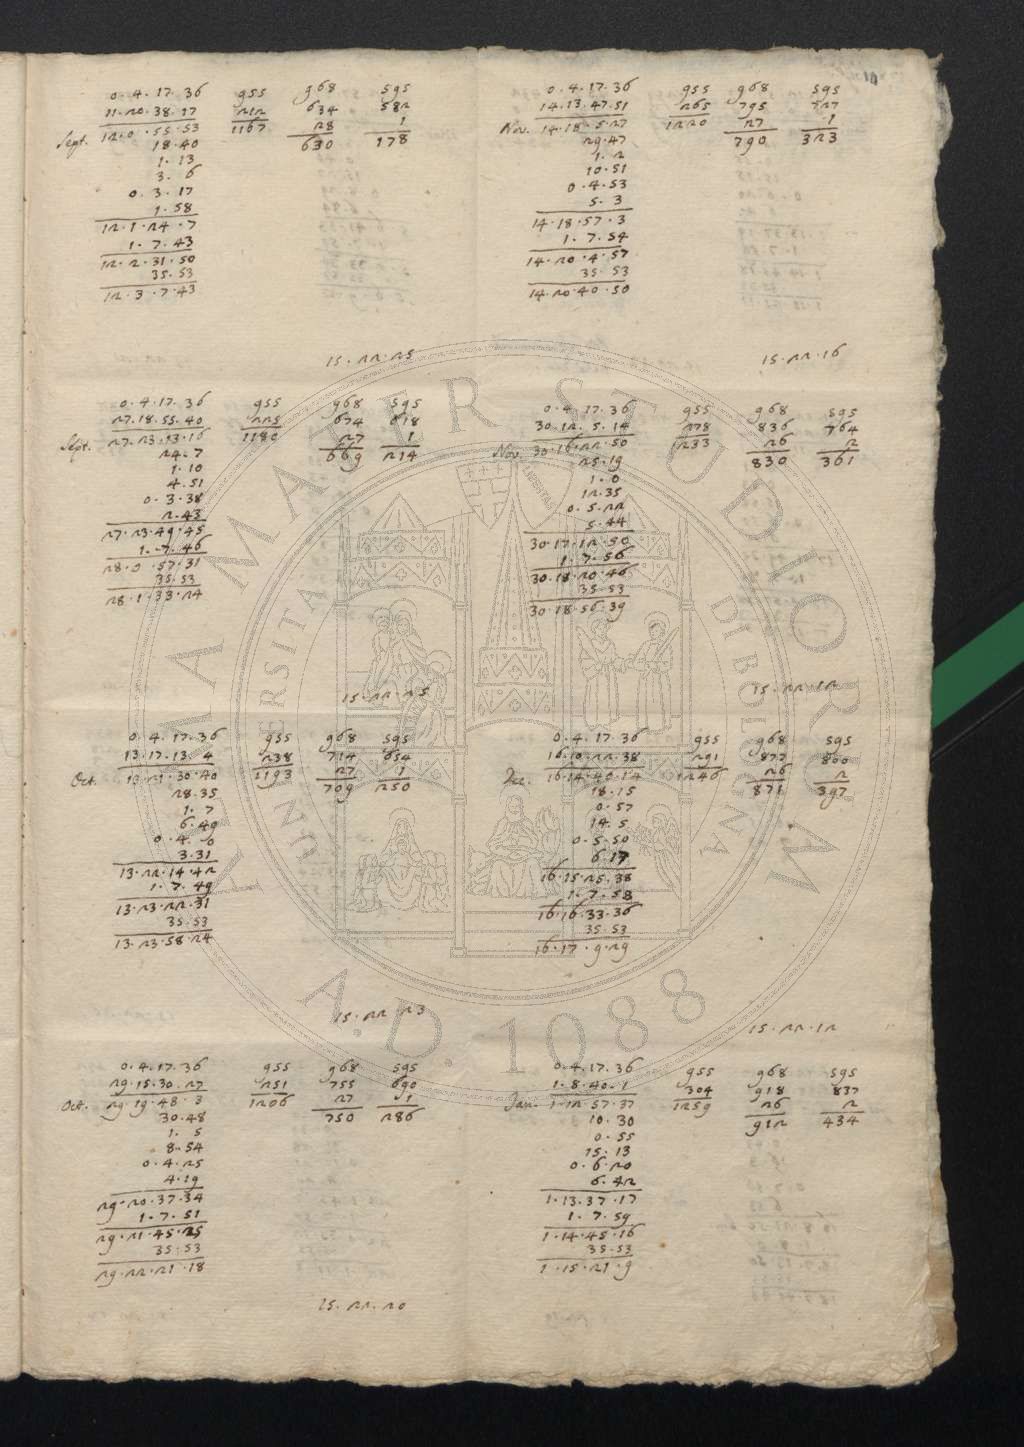 0.4.17.36 955 968 595
11.20.38.17 212 634 582
Sept. 12.0.55.53 1167 28 1
18.40 630 178
1.13
3.6
0.3.17
1.58
12.1.24.7
1.7.43
12.2.31.50
35.53
12.3.7.43
15.22.25
0.4.17.36 955 968 595
27.18.55.40 225 674 618
Sept. 27.23.13.16 1180 27 1
24.7 669 214
1.10
4.51
0.3.38
2.43
27.23.49.45
1.7.46
28.0.57.31
35.53
28.1.33.24
15.22.25
0.4.17.36 955 968 595
13.17.13.4 238 714 654
Oct. 13.21.30.40 1193 27 1
28.35 709 250
1.7
6.49
0.4.0
3.31
13.22.14.42
1.7.49
13.23.22.31
35.53
13.23.58.24
15.22.23
0.4.17.36 955 968 595
29.15.30.27 251 755 690
Oct. 29.19.48.3 1206 27 1
30.48 750 286
1.5
8.54
0.4.25
4.19
29.20.37.34
1.7.51
29.21.45.25
35.53
29.22.21.18
15.22.20
0.4.17.36 955 968 595
14.13.47.51 265 795 727
Nov. 14.18.5.27 1220 27 1
29.47 790 323
1.2
10.51
0.4.53
5.3
14.18.57.3
1.7.54
14.20.4.57
35.53
14.20.40.50
15.22.16
0.4.17.36 955 968 595
30.12.5.14 278 836 764
Nov. 30.16.22.50 1233 26 2
25.19 830 361
1.0
12.35
0.5.22
5.44
30.17.12.50
1.7.56
30.18.20.46
35.53
30.18.56.39
15.22.12
0.4.17.36 955 968 595
16.10.22.38 291 877 800
Dec. 16.14.40.14 1246 26 2
18.15 871 397
0.57
14.5
0.5.50
6.17
16.15.25.38
1.7.58
16.16.33.36
35.53
16.17.9.29
15.22.12
0.4.17.36 955 968 595
1.8.40.1 304 918 837
Jan. 1.12.57.37 1259 26 2
10.30 912 434
0.55
15.13
0.6.20
6.42
1.13.37.17
1.7.59
1.14.45.16
35.53
1.15.21.9
ALMA MATER STUDIORUM
UNIVERSITÀ DI BOLOGNA
A.D. 1088